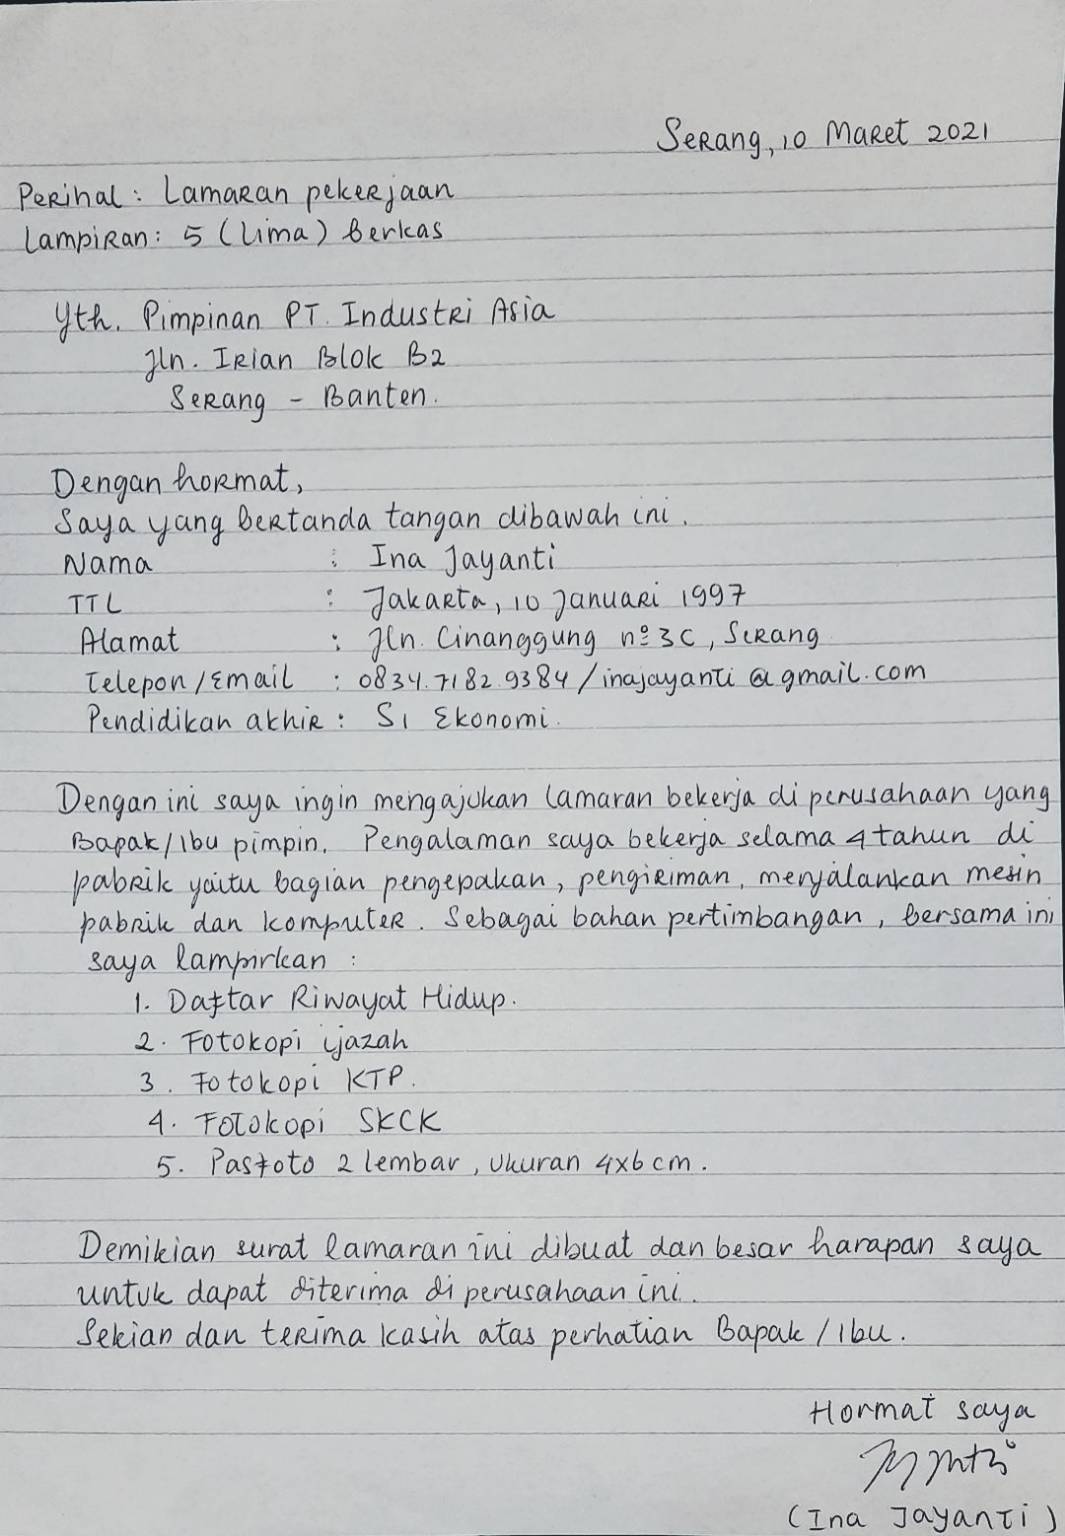 Serang, 10 Maret 2021
Perihal : Lamaran pekerjaan
Lampiran : 5 (Lima) Berkas
Yth. Pimpinan PT. Industri Asia
Jln. Irian Blok B2
Serang - Banten.
Dengan hormat,
Saya yang bertanda tangan dibawah ini.
Nama : Ina Jayanti
TTL : Jakarta, 10 Januari 1997
Alamat : Jln. Cinanggung nº 3C, Serang
Telepon/Email : 0834.7182.9384/inajayanti@gmail.com
Pendidikan akhir : S1 Ekonomi.
Dengan ini saya ingin mengajukan lamaran bekerja di perusahaan yang
Bapak/Ibu pimpin. Pengalaman saya bekerja selama 4 tahun di
pabrik yaitu bagian pengepakan, pengiriman, menjalankan mesin
pabrik dan komputer. Sebagai bahan pertimbangan, bersama ini
saya lampirkan :
1. Daftar Riwayat Hidup.
2. Fotokopi ijazah
3. Fotokopi KTP.
4. Fotokopi SKCK
5. Pasfoto 2 lembar, ukuran 4x6 cm.
Demikian surat lamaran ini dibuat dan besar harapan saya
untuk dapat diterima di perusahaan ini.
Sekian dan terima kasih atas perhatian Bapak/Ibu.
Hormat saya
(Ina Jayanti)